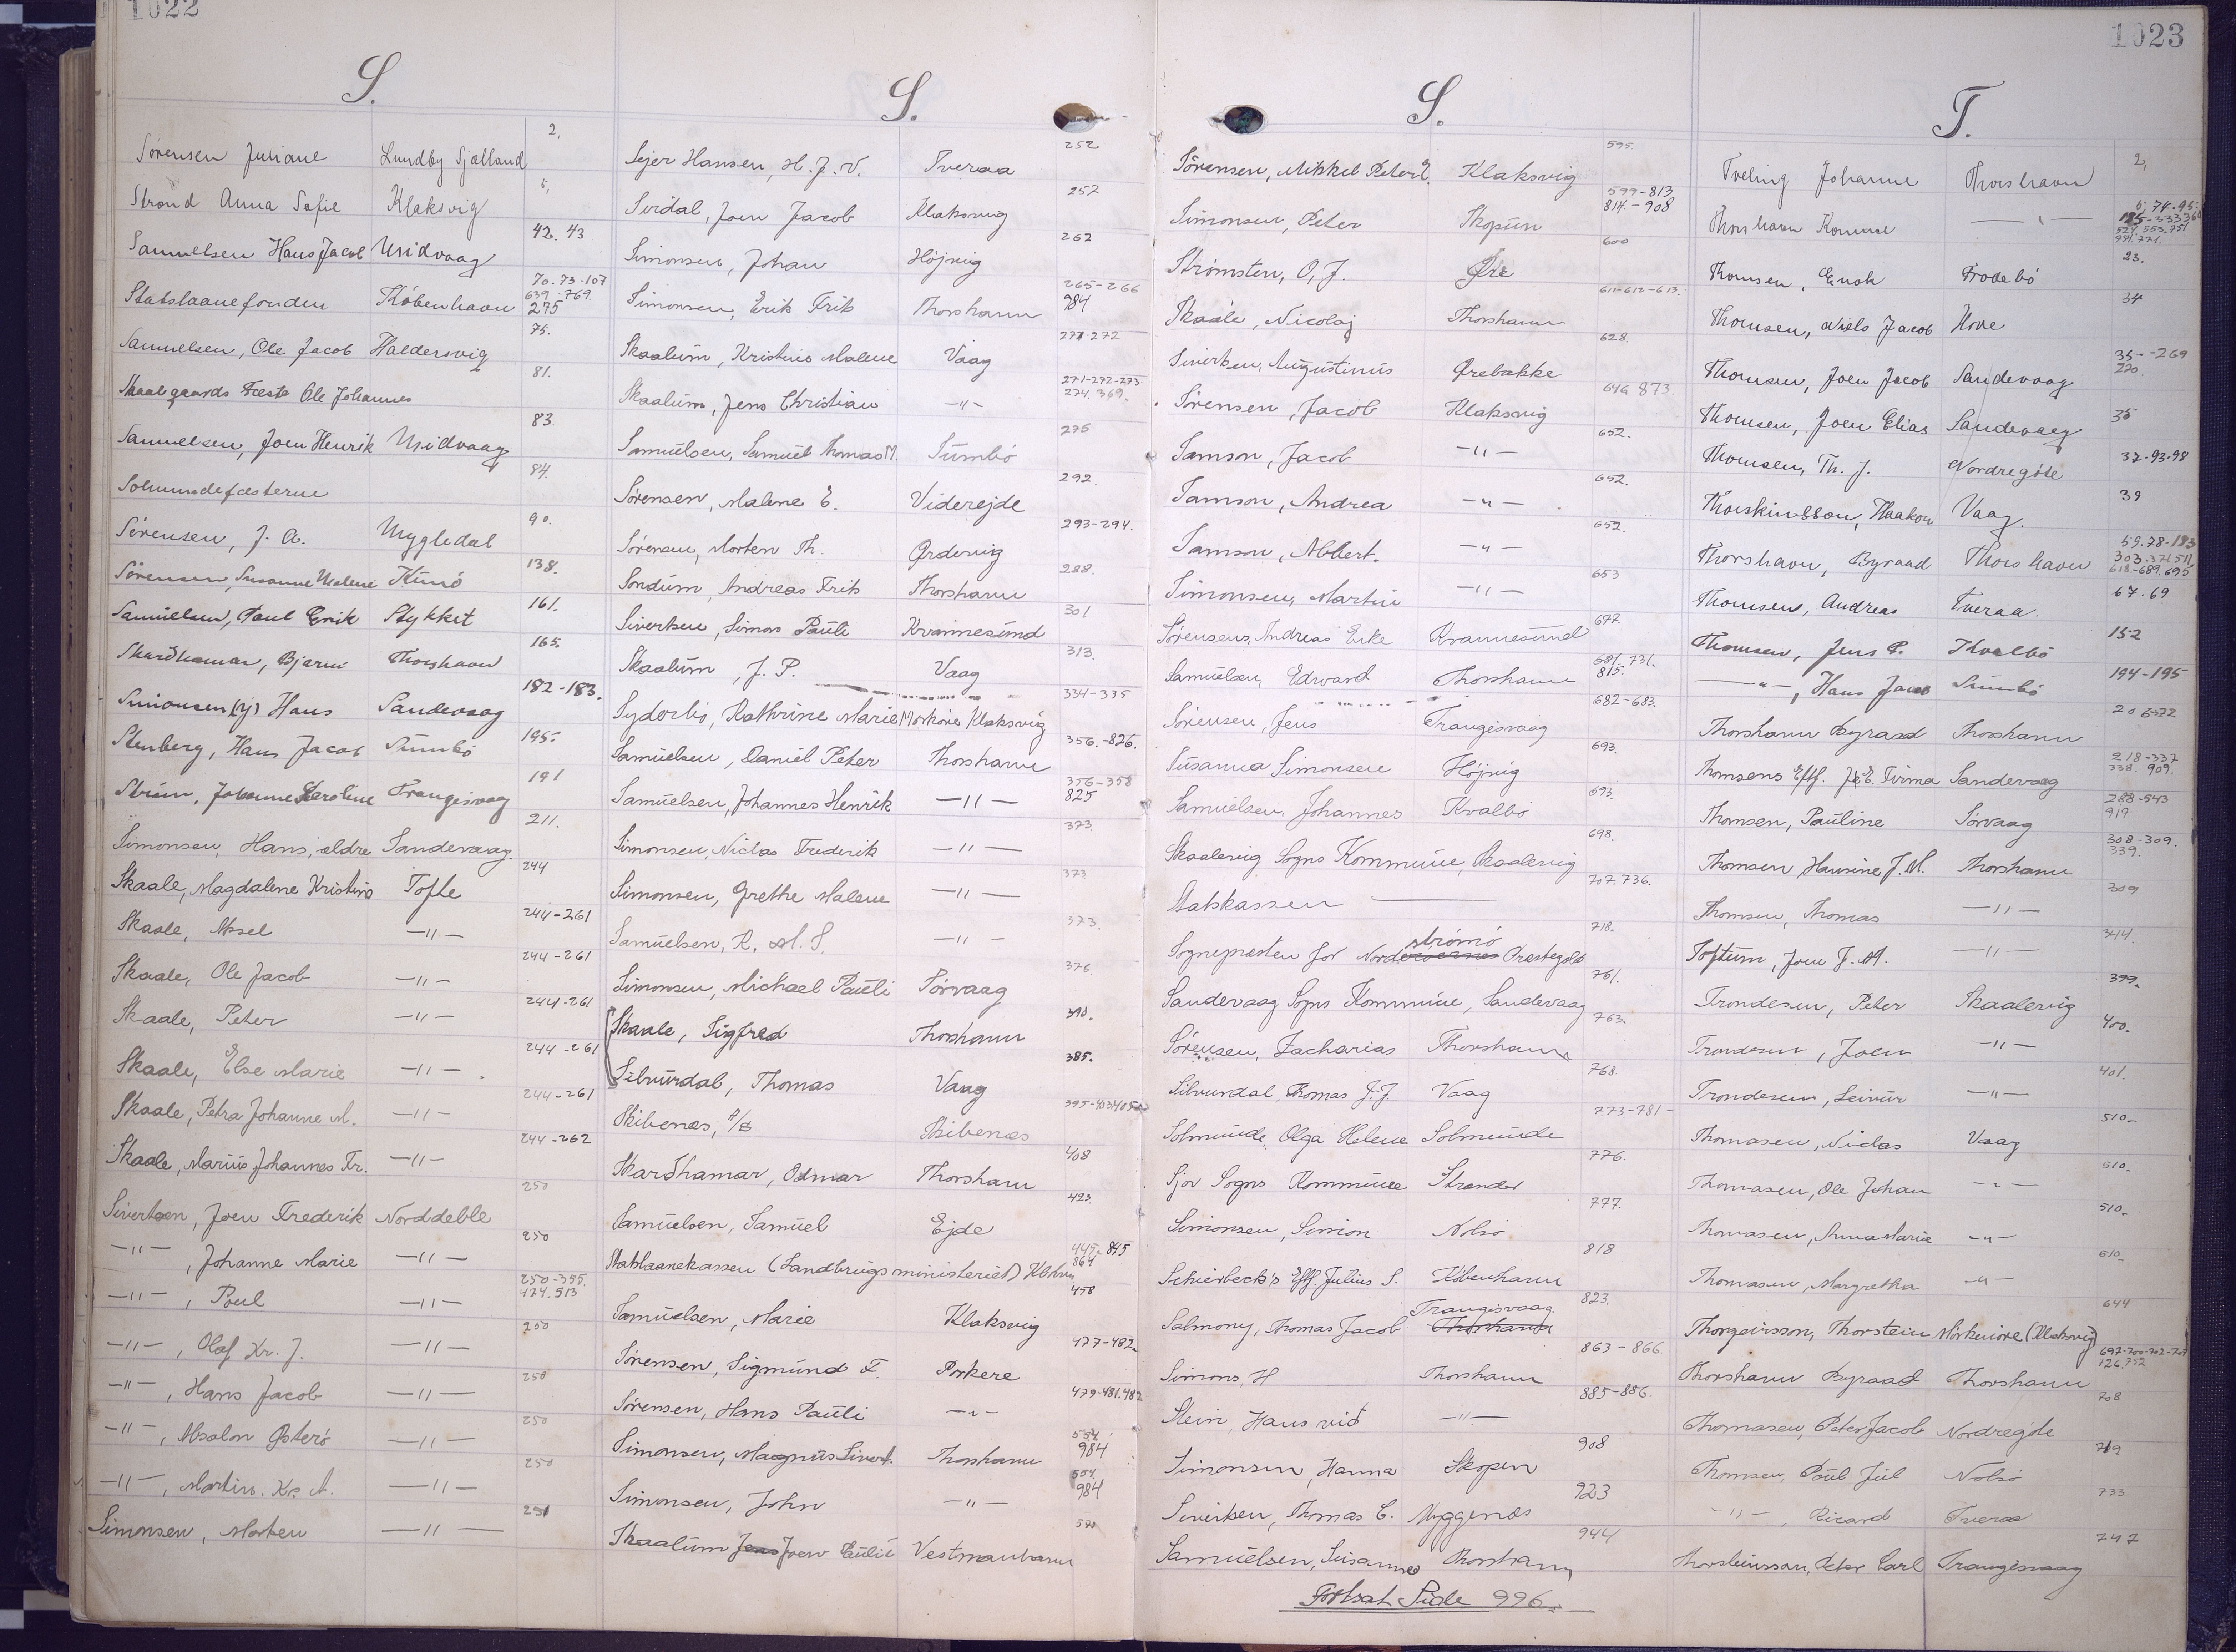 1022
S.
Sørensen Juliane Lundby Sjælland 2,
Strond Anna Sofie Klaksvig 5,
Samuelsen Hans Jacob Hvidvaag 42. 43
Statslaanefonden København 70. 73-107 639-769. 275
Samuelsen, Ole Jacob Haldersvig 75.
Skaalgaards Fæste Ole Johannes 81.
Samuelsen, Joen Henrik Hvidvaag 83.
Solmundefæsterne 84.
Sørensen, J. A. Mygledal 90.
Sørensen, Susanne Malene Kunö 138.
Samuelsen, Poul Erik Stykket 161.
Skarðhamar, Bjarni Thorshavn 165.
Simonsen (yj) Hans Sandevaag 182-183.
Stenberg, Hans Jacob Sumbö 195.
Strüm, Johanne Karoline Trangisvaag 191
Simonsen, Hans, ældre Sandevaag. 211.
Skaale, Magdalene Kristina Tofte 244
Skaale, Absel —"— 244-261
Skaale, Ole Jacob —"— 244-261
Skaale, Peter —"— 244-261
Skaale, Else Marie —"— 244-261
Skaale, Petra Johanne M. —"— 244-261
Skaale, Marius Johannes Fr. —"— 244-262
Sivertsen, Joen Frederik Norddeble 250
—"—, Johanne Marie —"— 250
—"—, Poul —"— 250-395. 474. 513
—"—, Olaf Kr. J. —"— 250
—"—, Hans Jacob —"— 250
—"—, Absalon Østerö —"— 250
—"—, Martin. Kr. A. —"— 250
Simonsen, Morten —"— 251
S.
Sejer Hansen, H. J. V. Tveraa 252
Sivdal, Joen Jacob Klaksvig 257
Simonsen, Johan Höjvig 262
Simonsen, Erik Frits Thorshavn 265-266 984
Skaalum, Kristine Malene Vaag 271-272
Skaalum, Jens Christian —"— 271-272-273. 274. 369.
Samuelsen, Samuel Thomas M. Sumbö 275
Sørensen, Malene E. Viderejde 292.
Sørensen, Morten Th. Ørdevig 293-294.
Sondum, Andreas Frits Thorshavn 288.
Sivertsen, Simon Pauli Kvannesund 301
Skaalum, J. P. Vaag 313.
Sydorbö, Kathrine Marie Morköre Klaksvig 334-335
Samuelsen, Daniel Peter Thorshavn 356.-826.
Samuelsen, Johannes Henrik —"— 356-358 825
Simonsen, Niclas Frederik —"— 373.
Simonsen, Grethe Malene —"— 373
Samuelsen, R. M. S. —"— 373.
Simonsen, Michael Pauli Sörvaag 376
Skaale, Sigfred Thorshavn 390.
Silvurdal, Thomas Vaag 385.
Skibenæs, A/S Skibenæs
Skarðhamar, Odmar Thorshavn 408
Samuelsen, Samuel Ejde 423.
Statslaanekassen (Landbrugsministeriet) 445-845 864
Samuelsen, Marie Klaksvig 458
Sørensen, Sigmund F. Porkere 477-482.
Sørensen, Hans Pauli —"— 479-481. 482
Simonsen, Magnus Sivert. Thorshavn 554. 984
Simonsen, John —"— 554. 984
Skaalum Jens Joen Pauli Vestmanhavn 570
1023
S.
Sörensen, Mikkel Peter E. Klaksvig 595.
Simonsen, Peter Skopun 599-813 814.-908
Strømsten, O. J. Øre 600
Skaale, Nicolaj Thorshavn 611-612-613.
Sivertsen, Augustinus Ørebakke 628.
Sörensen, Jacob Klaksvig 646 873
Samson, Jacob —"— 652.
Samson, Andrea —"— 652.
Samson, Albert. —"— 652.
Simonsen, Martin —"— 653
Sørensen, Andreas Erke Kvannesund 677
Samuelsen, Edward Thorshavn 681. 731. 815.
Sörensen, Jens Trangisvaag 682-683.
Susanna Simonsen Höjvig 693.
Samuelsen, Johannes Kvalbö 693.
Skaalevig Sogns Kommune, Skaalevig 698.
Statskassen —— 707. 736.
Sognepræsten for Norderøernes strömö Præstegæld 718.
Sandevaag Sogns Kommune, Sandevaag 761.
Sörensen, Zacharias Thorshavn 763.
Silvurdal, Thomas J. J. Vaag 768.
Solmunde, Olga Helene Solmunde 773-781-
Sjov Sogns Kommune Strender 776.
Simonsen, Simion Nolsö 777.
Schierbeck's Eftf. Julius S. København 818
Salmony, Thomas Jacob Trangisvaag. Thorshavn 823.
Simons, H Thorshavn 863-866.
Stein, Hans við —"— 885-886.
Simonsen, Hanna Skopen 908
Sivertsen, Thomas C. Myggenæs 923
Samuelsen, Susanna Thorshavn 944
Fortsat Side 996.
T.
Tveling Johanne Thorshavn 2,
Thorshavn Komune —"—
Thomsen, Enok Frodebö 23.
Thomsen, Niels Jacob Hove 34
Thomsen, Joen Jacob Sandevaag 35--269 270.
Thomsen, Joen Elias Sandevaag 35
Thomsen, Th. J. Nordregöte 37-93-98
Thorskinsson, Haakon Vaag. 39
Thorshavn, Byraad Thorshavn 59. 78-193 303. 371 511, 618-689. 695
Thomsen, Andreas Tveraa. 67. 69
Thomsen, Jens P. Kvalbö 152
—"—, Hans Jacob Sumbö 194-195
Thorshavn Byraad Thorshavn 206-372
Thomsens Eftf. J&E. Firma Sandevaag 218-337 338. 909.
Thomsen, Pauline Sörvaag 288-543 919
Thomsen Hansine J. M. Thorshavn 308-309. 339.
Thomsen, Thomas —"— 309
Toftum, Joen J. M. —"— 344.
Trondesen, Peter Skaalevig 399.
Trondesen, Joen —"— 400.
Trondesen, Leivur —"— 401.
Thomasen, Niclas Vaag 510-
Thomasen, Ole Johan —"— 510-
Thomasen, Anna Marie —"— 510-
Thomasen, Margretha —"— 510-
Thorgeirsson, Thorstein Morkniore (Klaksvig) 644
Thorshavn Byraad Thorshavn 697-700-702-708 726. 752
Thomasen, Peter Jacob Nordregöte 708
Thomsen, Poul Juul Nolsö 719
—"—, Ricard Tveraa 733
Thorsteinsson, Peter Carl Trangisvaag 747